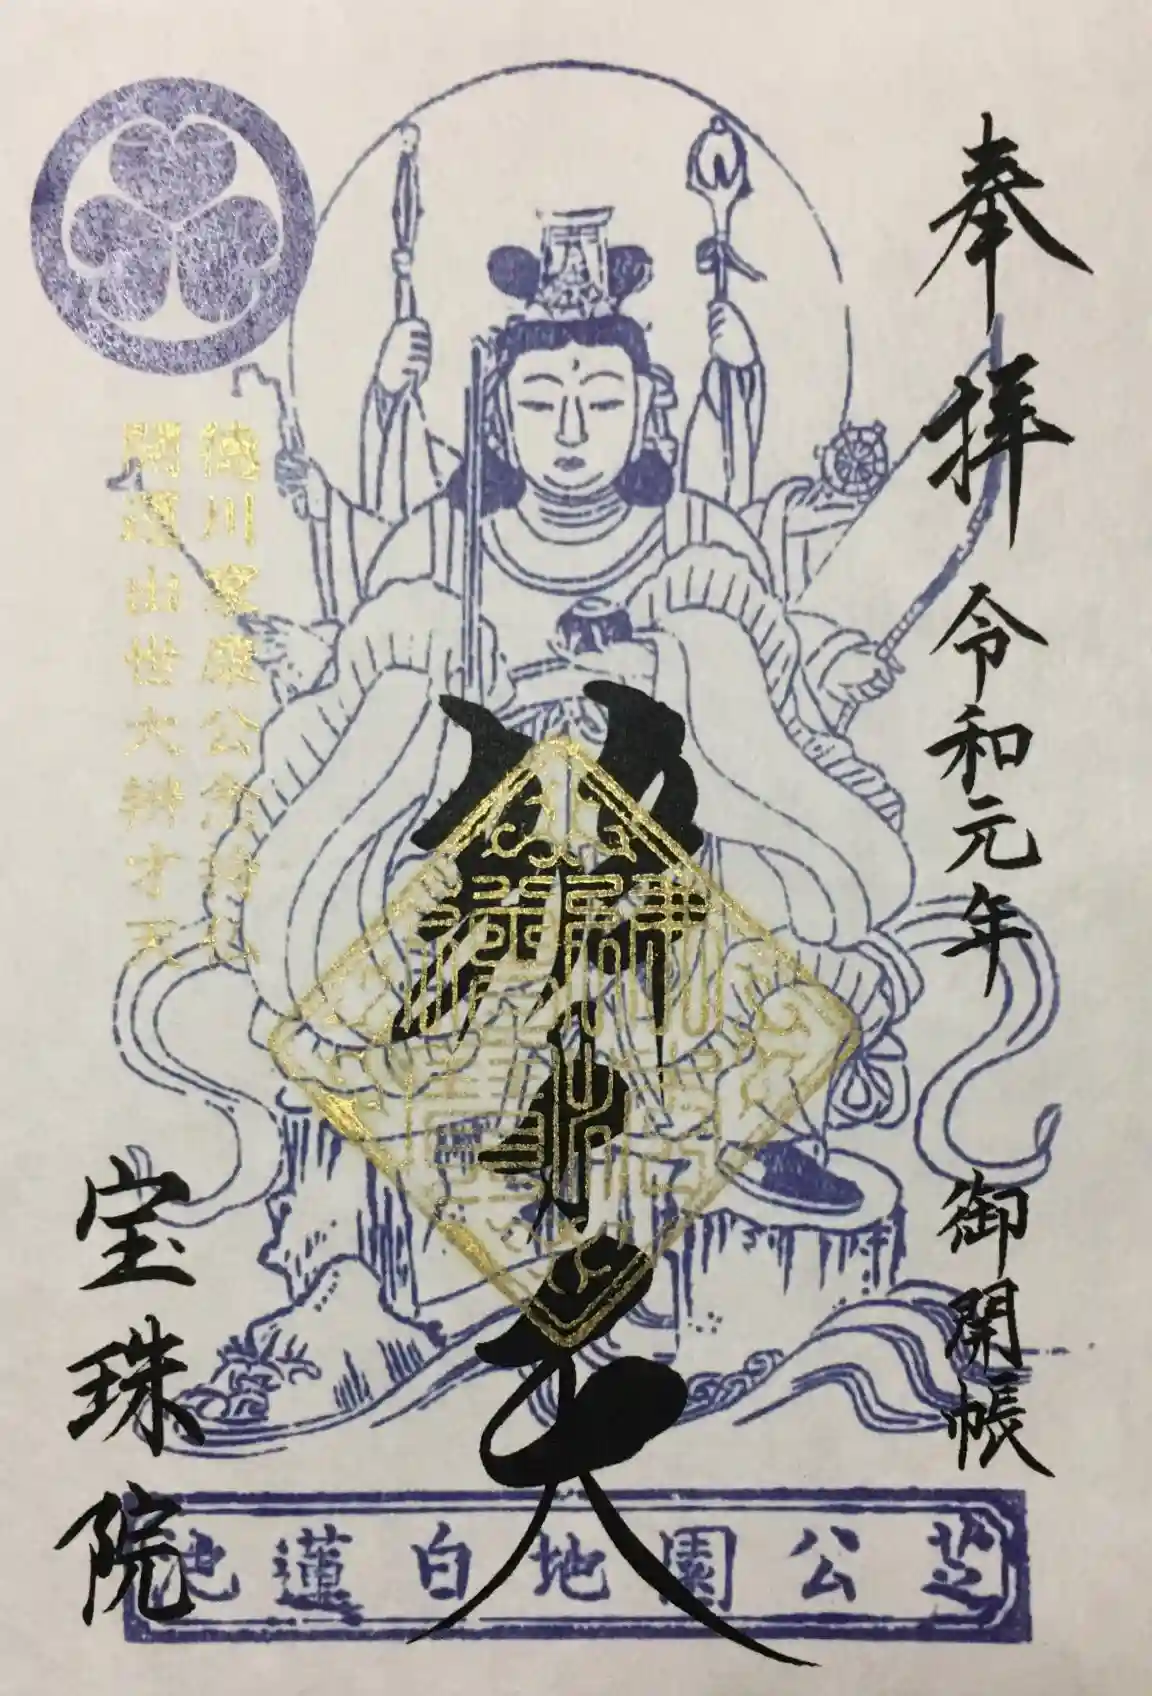 奉拝 令和元年 御開帳
辨才天
徳川家康公
開運出世大辨才天
宝珠院
芝公園地白蓮池